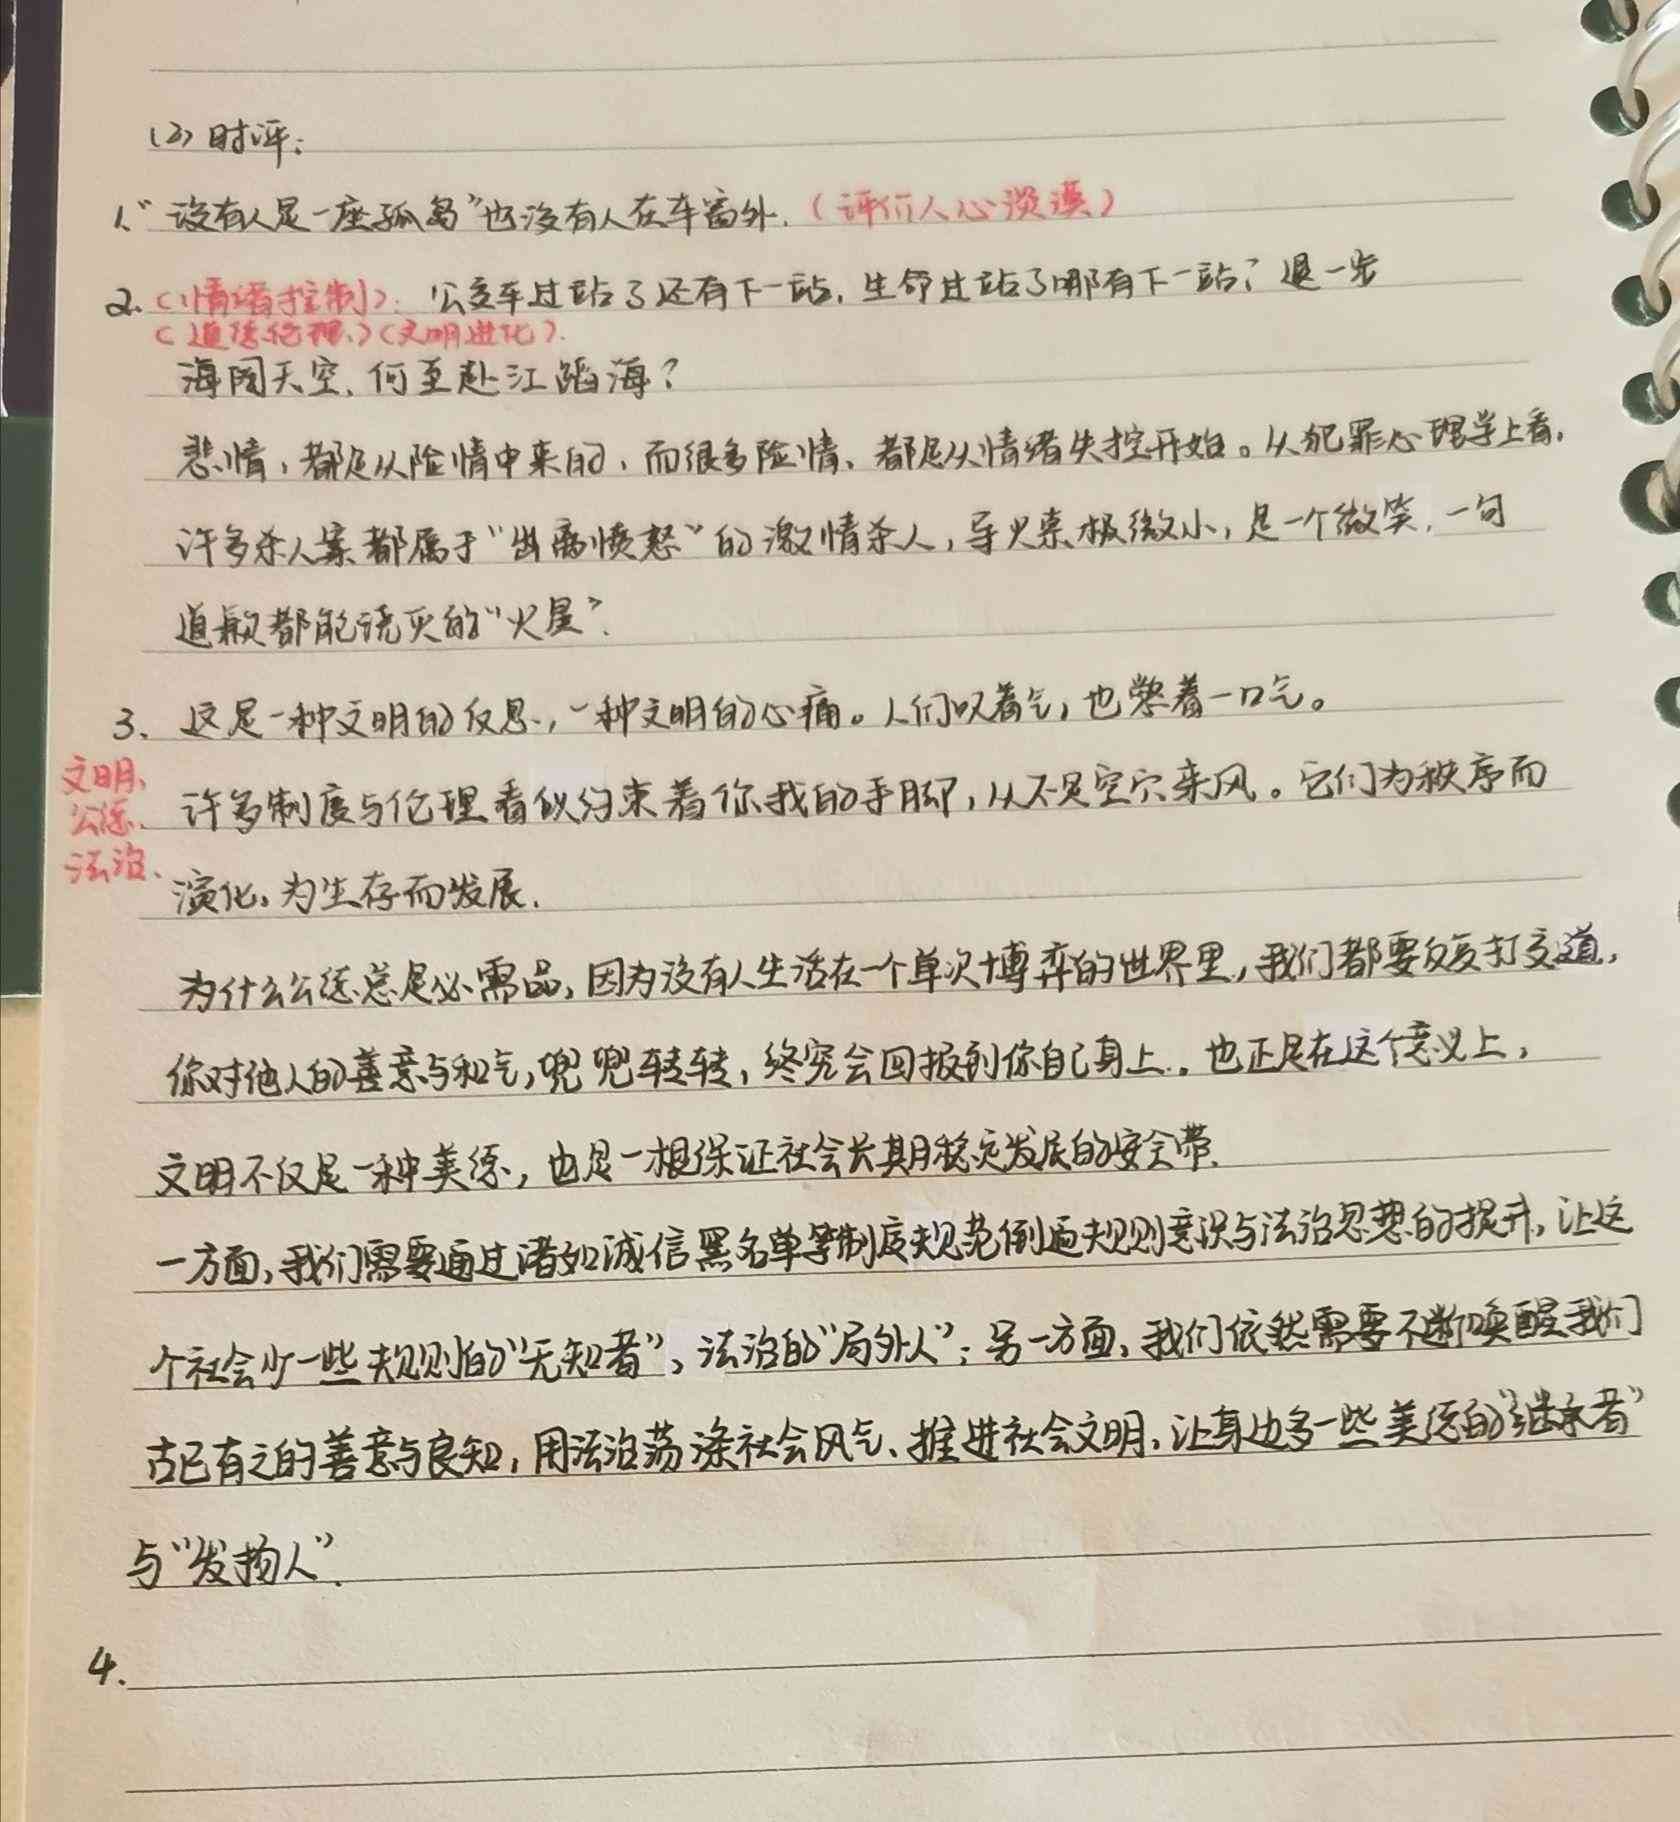 (2) 时评:
1.“没有人是一座孤岛”也没有人在车窗外.(评价人心淡漠)
2.(情绪控制):公交车过站了还有下一站,生命过站了哪有下一站?退一步
(道德伦理、)(文明进化).
海阔天空,何至赴江蹈海?
悲情,都是从险情中来的,而很多险情、都是从情绪失控开始。从犯罪心理学上看,
许多杀人案都属于“出离愤怒”的激情杀人,导火索极微小,是一个微笑,一句
道歉都能浇灭的“火星”.
3、这是一种文明的反思,一种文明的心痛。人们叹着气,也憋着一口气。
文明、
许多制度与伦理看似约束着你我的手脚,从不是空穴来风。它们为秩序而
公德、
法治、
演化,为生存而发展.
为什么公德总是必需品,因为没有人生活在一个单次博弈的世界里,我们都要反复打交道,
你对他人的善意与和气,兜兜转转,终究会回报到你自己身上.。也正是在这个意义上,
文明不仅是一种美德,也是一根保证社会长期稳定发展的安全带.
一方面,我们需要通过诸如诚信黑名单等制度规范倒逼规则意识与法治思想的提升,让这
个社会少一些规则的“无知者”,法治的“局外人”;另一方面,我们依然需要不断唤醒我们
古已有之的善意与良知,用法治荡涤社会风气、推进社会文明,让身边多一些美德的“继承者”
与“发扬人”.
4.